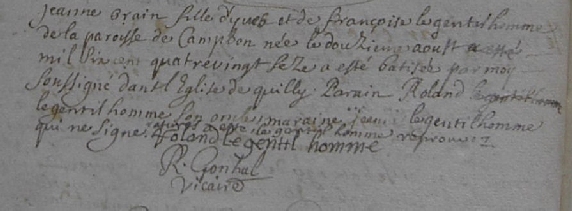 jeanne orain fille d'yves et de françoise legentilhomme
de la paroisse de Campbon née le douzieme aoust a esté
mil six cent quatrevingt seze a esté batisée par moy
soussigné dans l'Eglise de quilly Parain Roland
legentilhomme son oncle maraine jeanne legentilhomme
qui ne signe. legentilhomme
Roland Le gentil homme
R. Gonhal
Vicaire